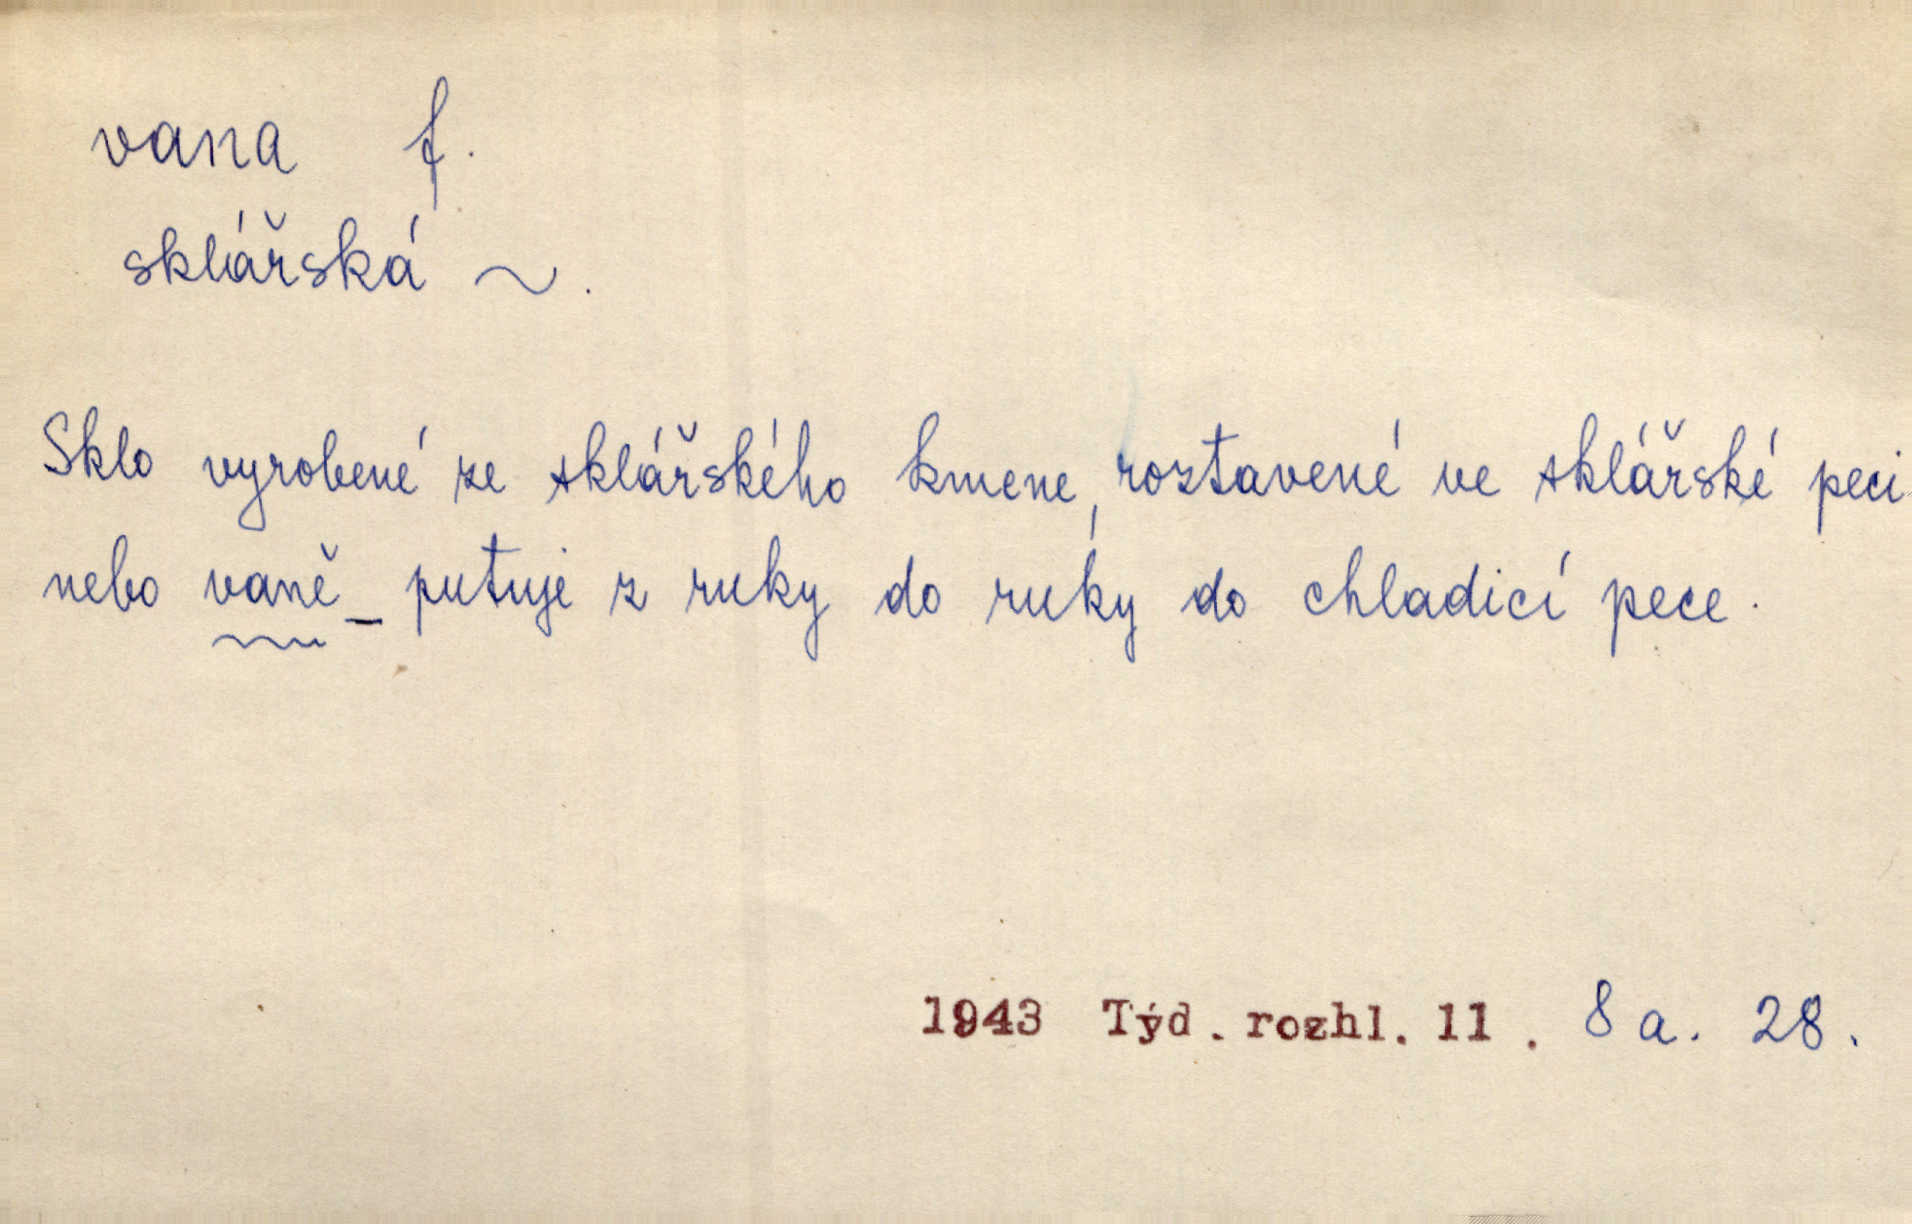 vana f.
sklářská ~.
Sklo vyrobené ze sklářského kmene, roztavené ve sklářské peci
nebo vaně – putuje z ruky do ruky do chladicí pece.
1943 Týd. rozhl. 11. 8 a. 28.